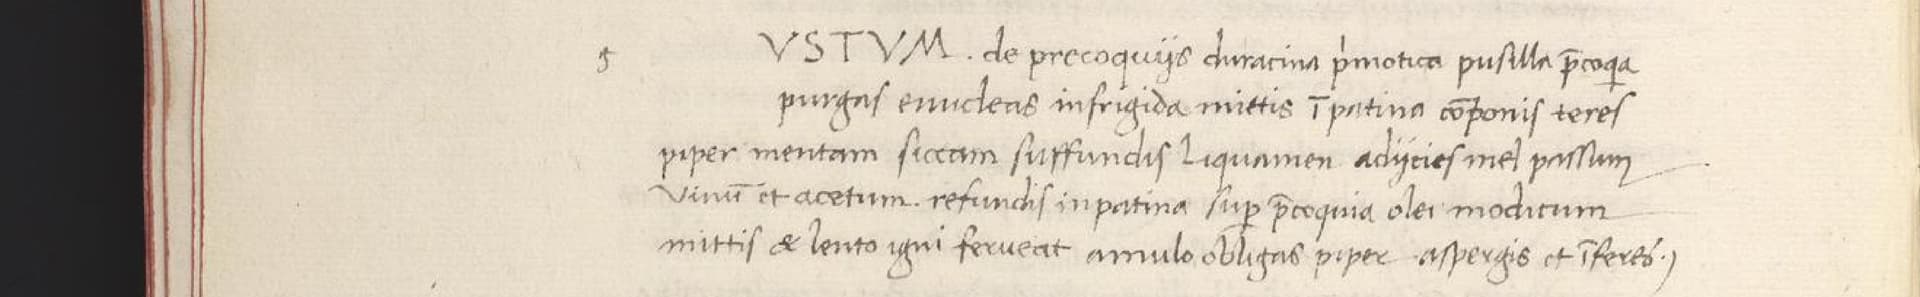 g VSTVM. de precoquijs duracina p̍motica pusilla p̄coqa
purgas enucleas infrigida mittis ī patina cōponis teres
piper mentam siccam suffundis Liquamen adijcies mel passum
Vinū et acetum. refundis inpatina sup p̄coquia olei modicum
mittis & lento igni ferueat amulo obligas piper aspergis et īferes.